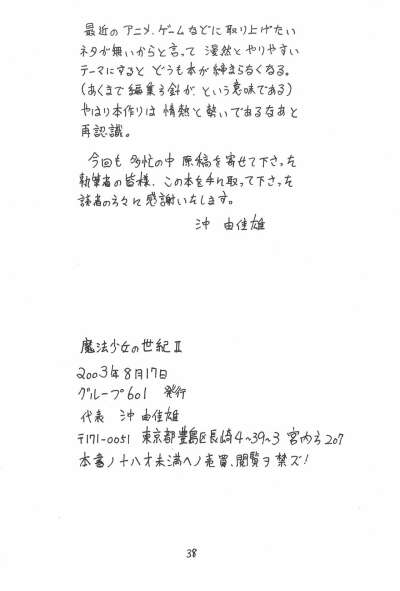 最近のアニメ、ゲームなどに取り上げたい
ネタが無いからと言って漫然とやりやすい
テーマにするとどうも本が締まらなくなる。
(あくまで編集方針が、という意味である)
やはり本作りは情熱と勢いであるなあと
再認識。
今回も多忙の中原稿を寄せて下さった
執筆者の皆様、この本を手に取って下さった
読者の方々に感謝いたします。
沖由佳雄
魔法少女の世紀II
2003年8月17日
グループ601 発行
代表 沖由佳雄
〒171-0051 東京都豊島区長崎4~39~3 宮内方207
本書ノ十八才未満ヘノ売買、閲覧ヲ禁ズ!
38